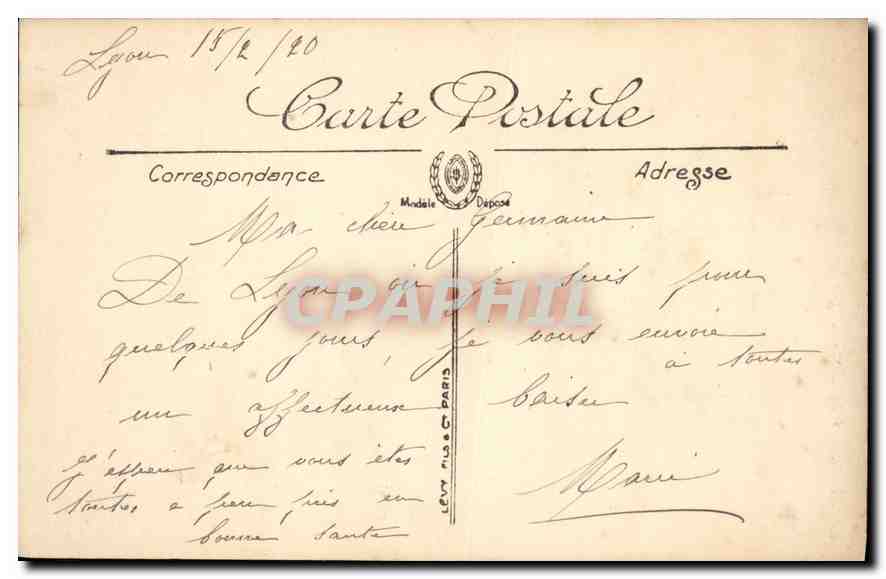 Lyon 15/2/20
Carte Postale
Correspondance
Adresse
Modèle Déposé
Ma chère Germaine
De Lyon où je suis pour
quelques jours, je vous envoie
à toutes
un affectueux baiser
J'espère que vous êtes
toutes a peu près en
bonne santé
Marie
LÉVY FILS & Cie PARIS
CPAPHIL